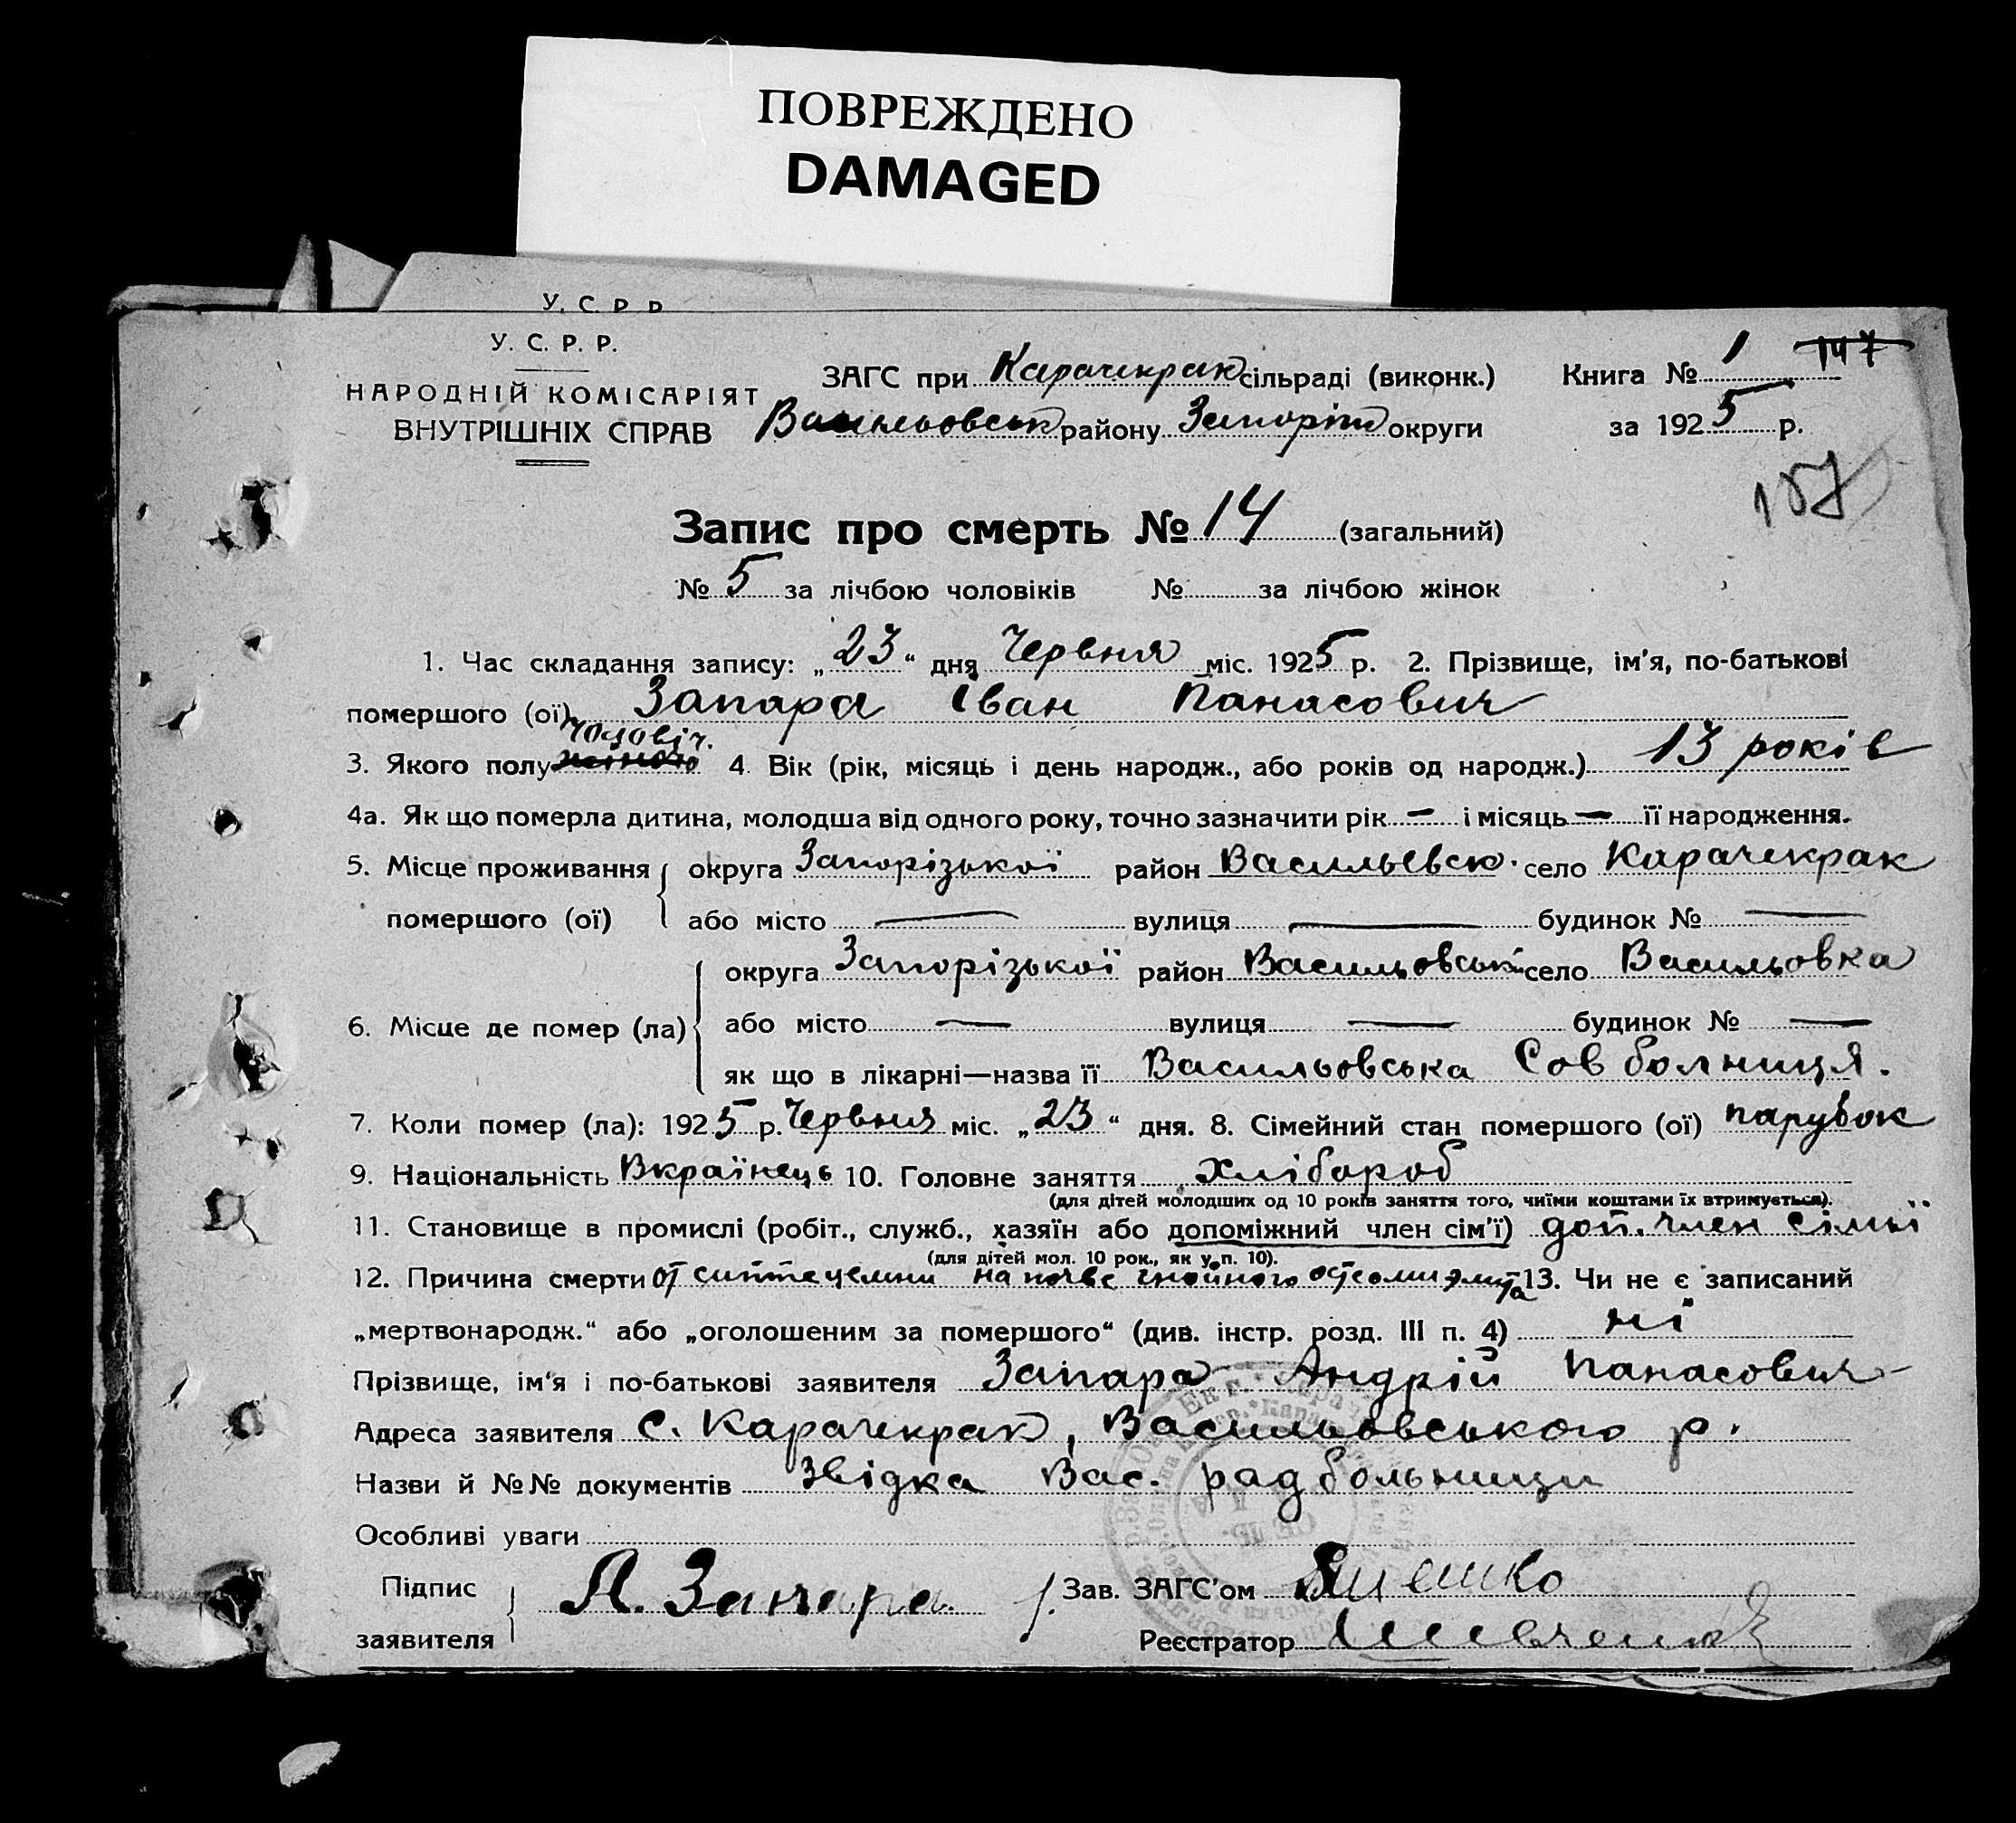 ПОВРЕЖДЕНО
DAMAGED
У. С. Р. Р.
У. С. Р. Р.
НАРОДНІЙ КОМІСАРІЯТ
ВНУТРІШНІХ СПРАВ
ЗАГС при Карачекрак сільраді (виконк.)
Васильовськ району Запоріж округи
Книга № 1 147
за 1925 р.
157
Запис про смерть № 14 (загальний)
№ 5 за лічбою чоловіків № за лічбою жінок
1. Час складання запису: „23“ дня Червня міс. 1925 р. 2. Прізвище, ім'я, по-батькові
помершого (ої) Запара Іван Панасович
чоловіч.
3. Якого полу жіночо 4. Вік (рік, місяць і день народж., або років од народж.) 13 років
4а. Як що померла дитина, молодша від одного року, точно зазначити рік — і місяць — її народження.
5. Місце проживання округа Запорізької район Васильевск. село Карачекрак
помершого (ої) або місто — вулиця — будинок № —
округа Запорізької район Васильовськ село Васильовка
6. Місце де помер (ла) або місто — вулиця — будинок № —
як що в лікарні—назва її Васильовська Сов болниця.
7. Коли помер (ла): 1925 р. Червня міс. „23“ дня. 8. Сімейний стан помершого (ої) парубок
9. Національність Вкраїнець 10. Головне заняття хлібороб
(для дітей молодших од 10 років заняття того, чиїми коштами їх втримується).
11. Становище в промислі (робіт., служб., хазяїн або допоміжний член сім'ї) доп. член сімьї
(для дітей мол. 10 рок., як у п. 10).
12. Причина смерти от на почве гнойного остеомиэлита 13. Чи не є записаний
„мертвонародж.“ або „оголошеним за помершого“ (див. інстр. розд. III п. 4) ні
Прізвище, ім'я і по-батькові заявителя Запара Андрій Панасович
Адреса заявителя с. Карачекрак, Васильовського р.
Назви й №№ документів Звідка Вас. радбольници
Особливі уваги
Підпис
заявителя А. Запара.
Зав. ЗАГС'ом
Реєстратор Шевченко